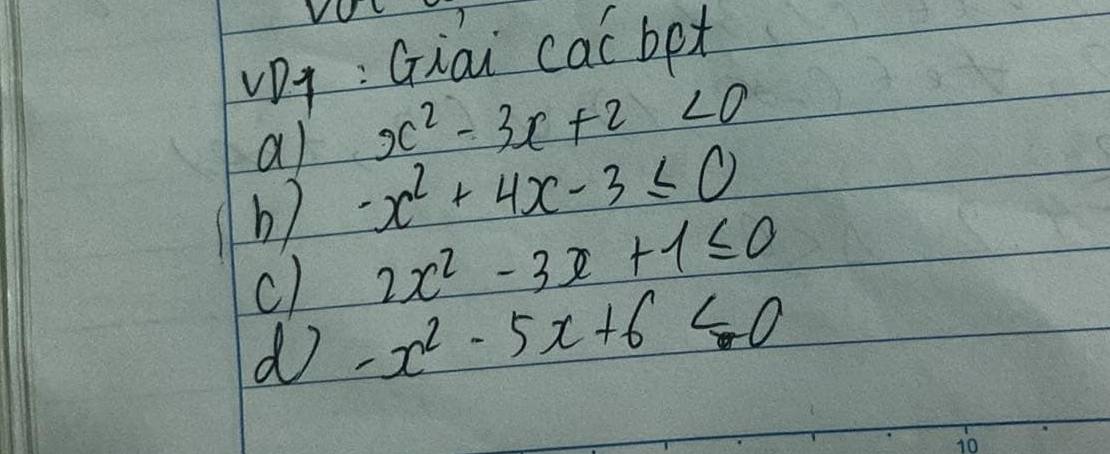 VD1 : Giải các bpt
a) x² - 3x + 2 < 0
b) -x² + 4x - 3 ≤ 0
c) 2x² - 3x + 1 ≤ 0
d) -x² - 5x + 6 ≤ 0
10